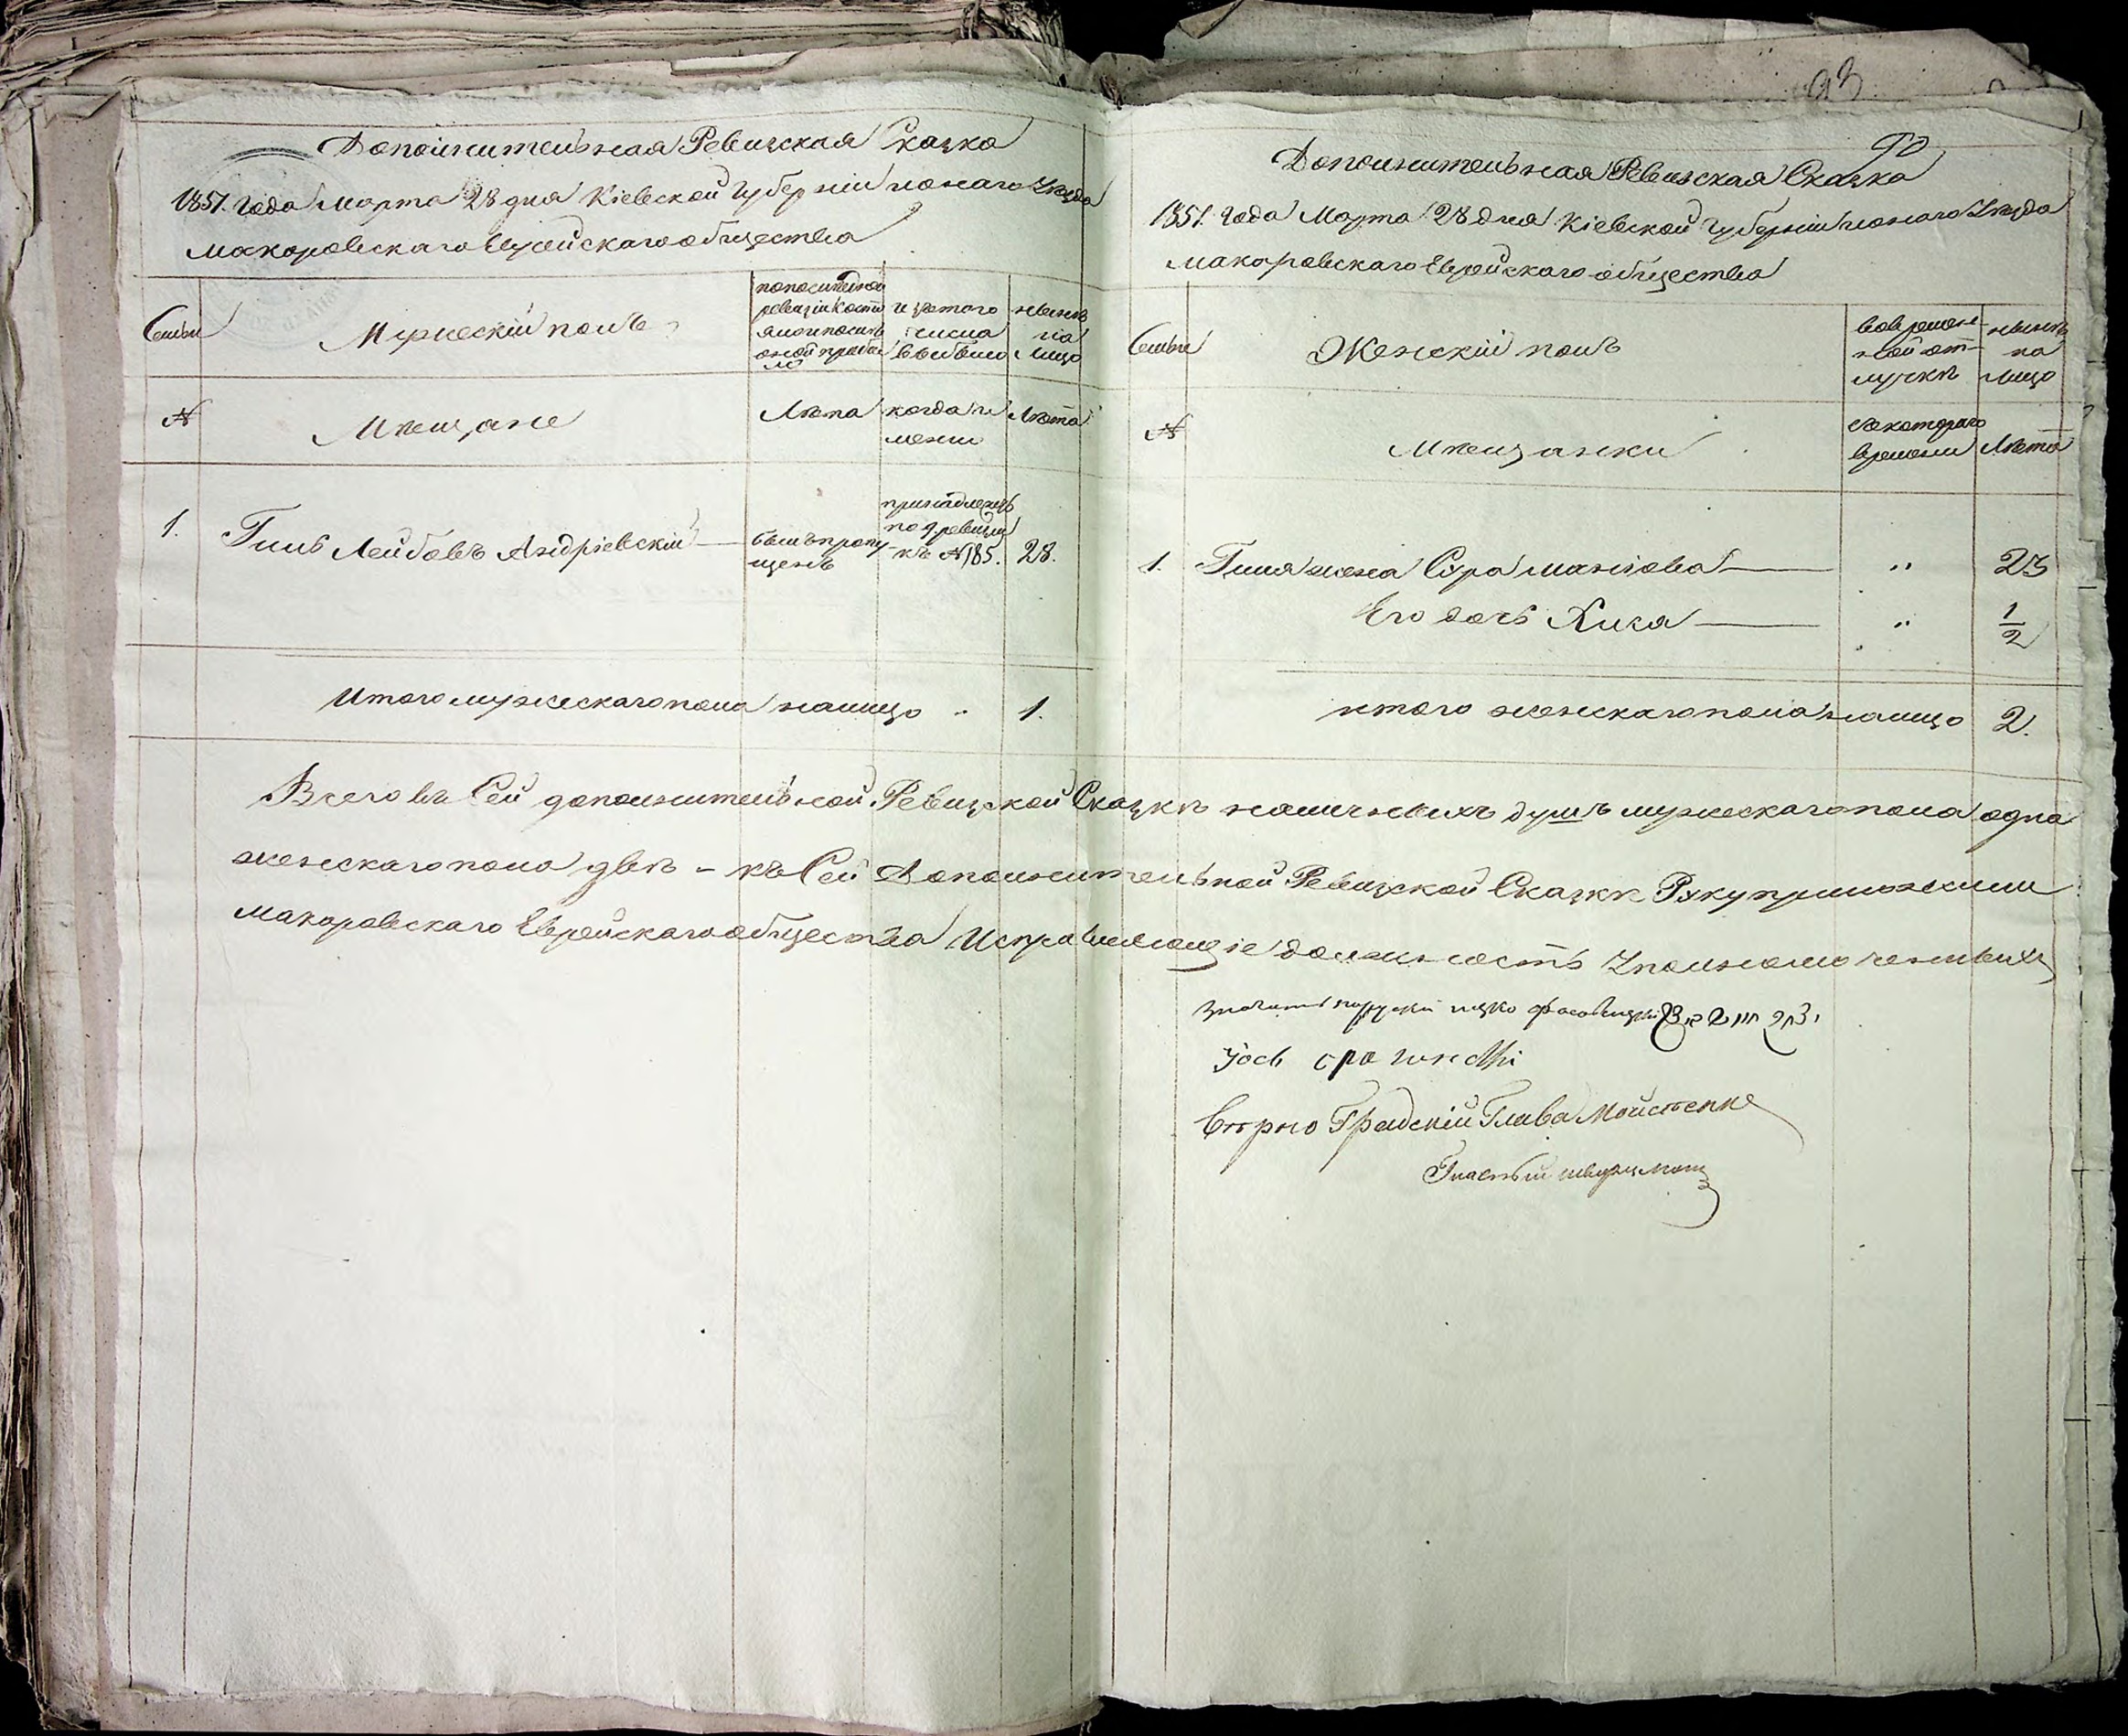 Дополнительная Ревизская Сказка
1851. года Марта 28 дня Кіевской Губерніи и онаго Уезда
Макаровскаго Еврейскаго общества
Семьи
Мужескій полъ
по последней
ревизіи состо
яло и после
оной прибы
ло
изъ того
числа
выбыло
ныне
на
лицо
№
Мещане
Лета
когда и
менно
Лета
1.
Гиль Лейбовъ Андріевскій
былъ пропу
щенъ
принадлежитъ
по 9 ревизіи
къ № 185.
28.
Итого мужескаго пола налицо " 1.
93
90
Дополнительная Ревизская Сказка
1851. года Марта 28 дня Кіевской Губерніи и онаго Уезда
Макаровскаго Еврейскаго общества
Семьи
Женскій полъ
во времен
ной от-
лучке
ныне
на
лицо
№
Мещанки
съ котораго
времени
Лета
1. Гиля жена Сура Маніова " 23
Его дочь Хика " 1/2
итого женскаго пола налицо 2.
Всего въ Сей дополнительной Ревизской Сказке наличныхъ душъ мужескаго пола одна
женскаго пола две - къ Сей Дополнительной Ревизской Сказке Руку приложили
Макаровскаго Еврейскаго общества Исправляющіе должность Уполномоченныхъ
Іось
Верно Градскій Глава